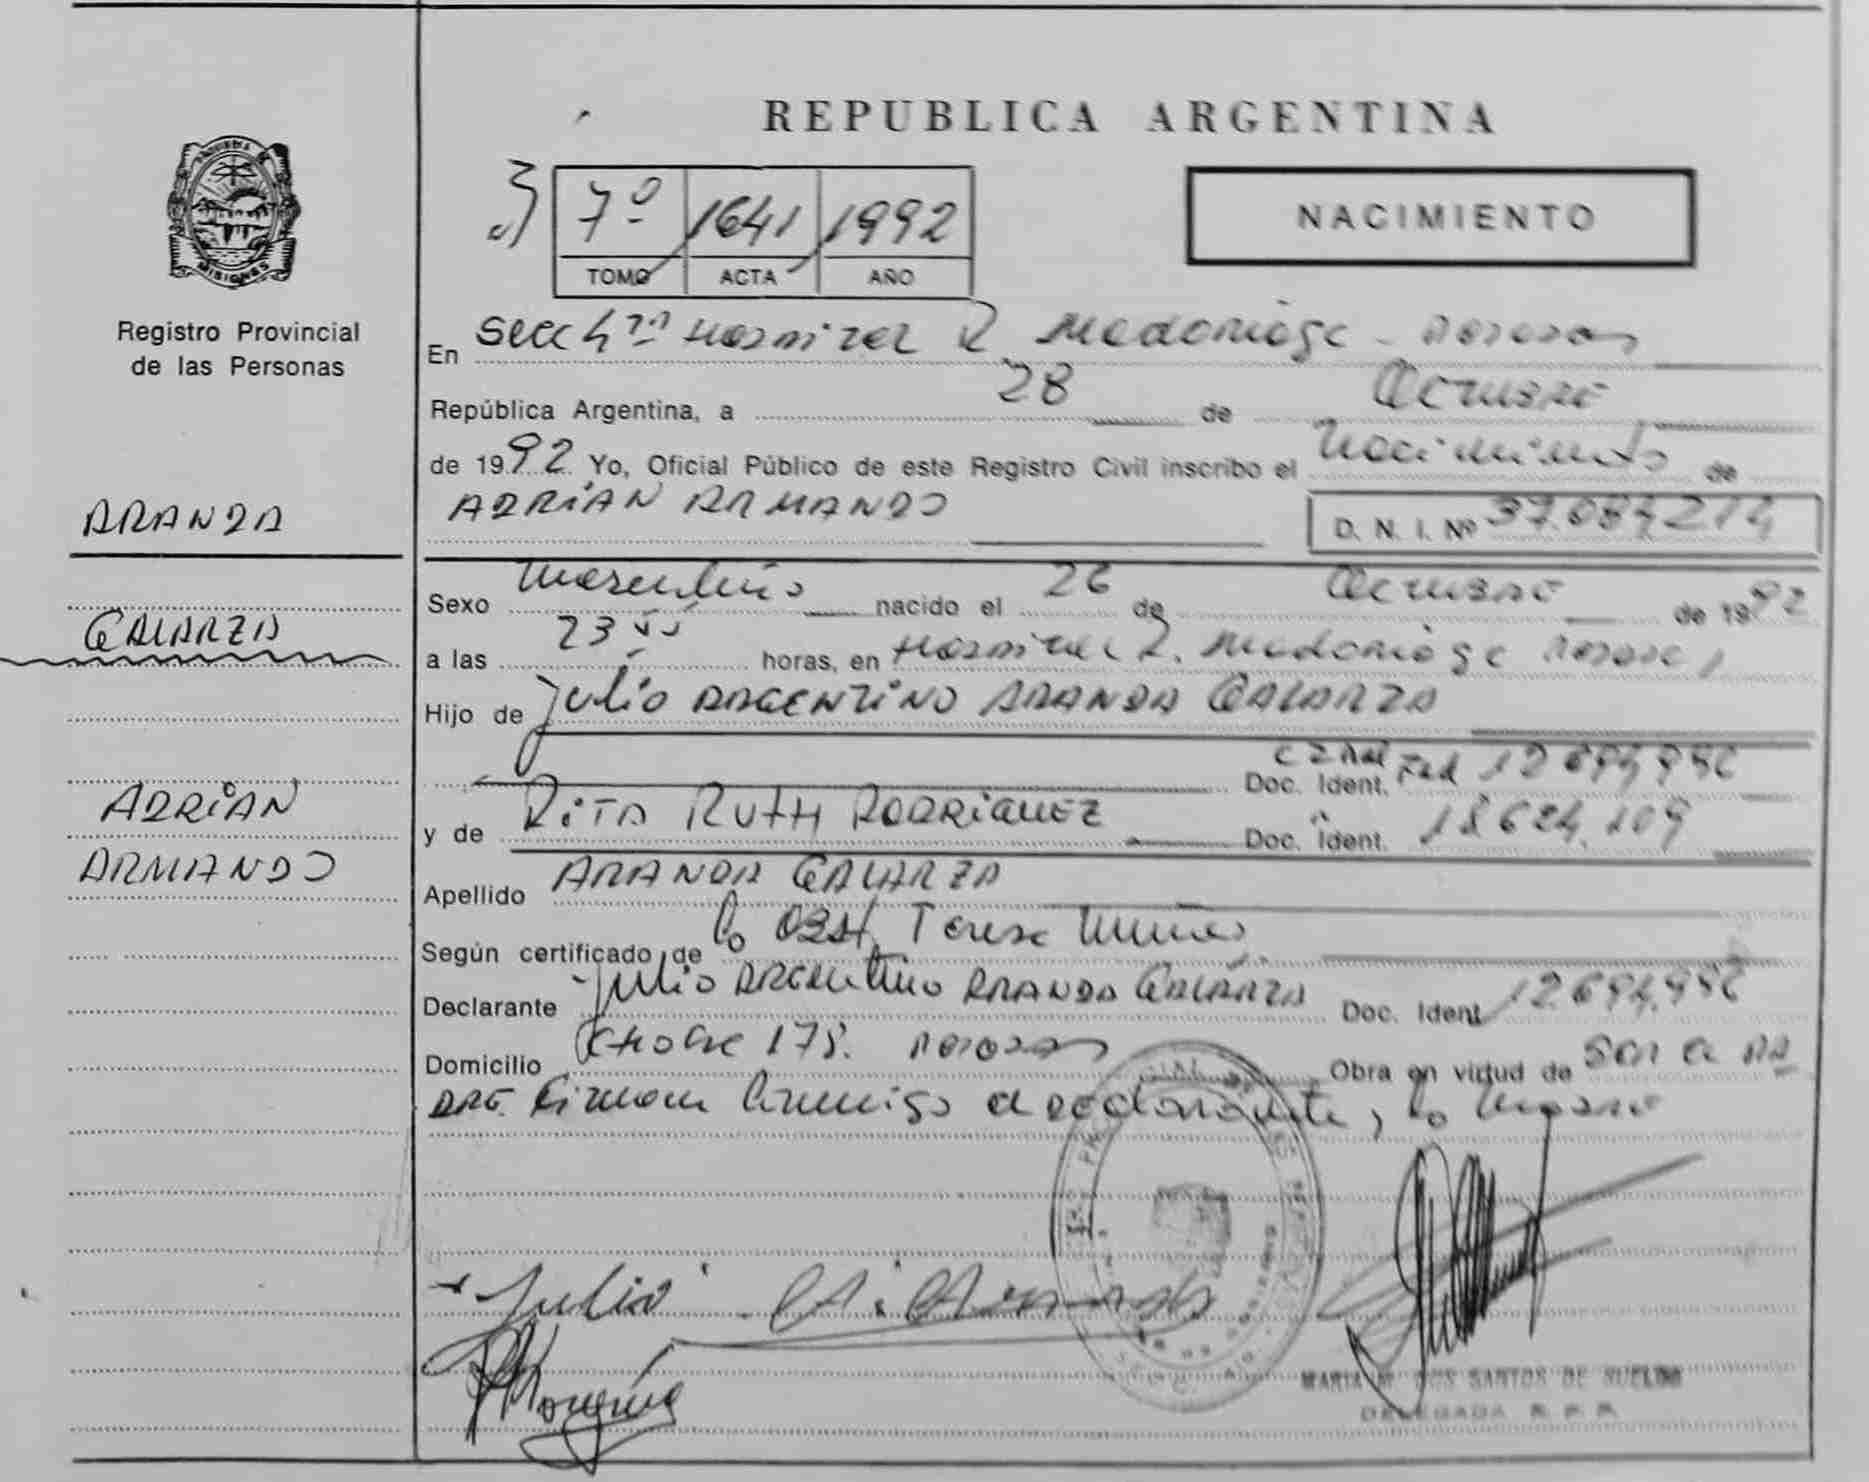 REPUBLICA ARGENTINA
PROVINCIA DE
MISIONES
Registro Provincial
de las Personas
7º 1641 1992
TOMO ACTA AÑO
NACIMIENTO
En Secc 4ta Hospital R. Madariaga - Posadas
República Argentina, a 28 de Octubre
de 1992 Yo, Oficial Público de este Registro Civil inscribo el Nacimiento de
ADRIÁN ARMANDO
D. N. I. Nº 37.084.214
ARANDA
GALARZA
ADRIÁN
ARMANDO
Sexo Masculino nacido el 26 de Octubre de 1992
a las 23 horas, en Hospital R. Madariaga Posadas
Hijo de Julio ARGENTINO ARANDA GALARZA
Doc. Ident. Fed 12.694.996
y de RITA RUTH RODRIGUEZ Doc. Ident. 18.624.109
Apellido ARANDA GALARZA
Según certificado de la OBST. Teresa Muñoz
Declarante Julio ARGENTINO ARANDA GALARZA Doc. Ident 12.694.996
Domicilio 178. Posadas Obra en virtud de SER EL PA
DRE. Firman conmigo el declarante, la
Julio A. Aranda
MARIA M. DOS SANTOS DE SUELDO
DELEGADA R. P. P.